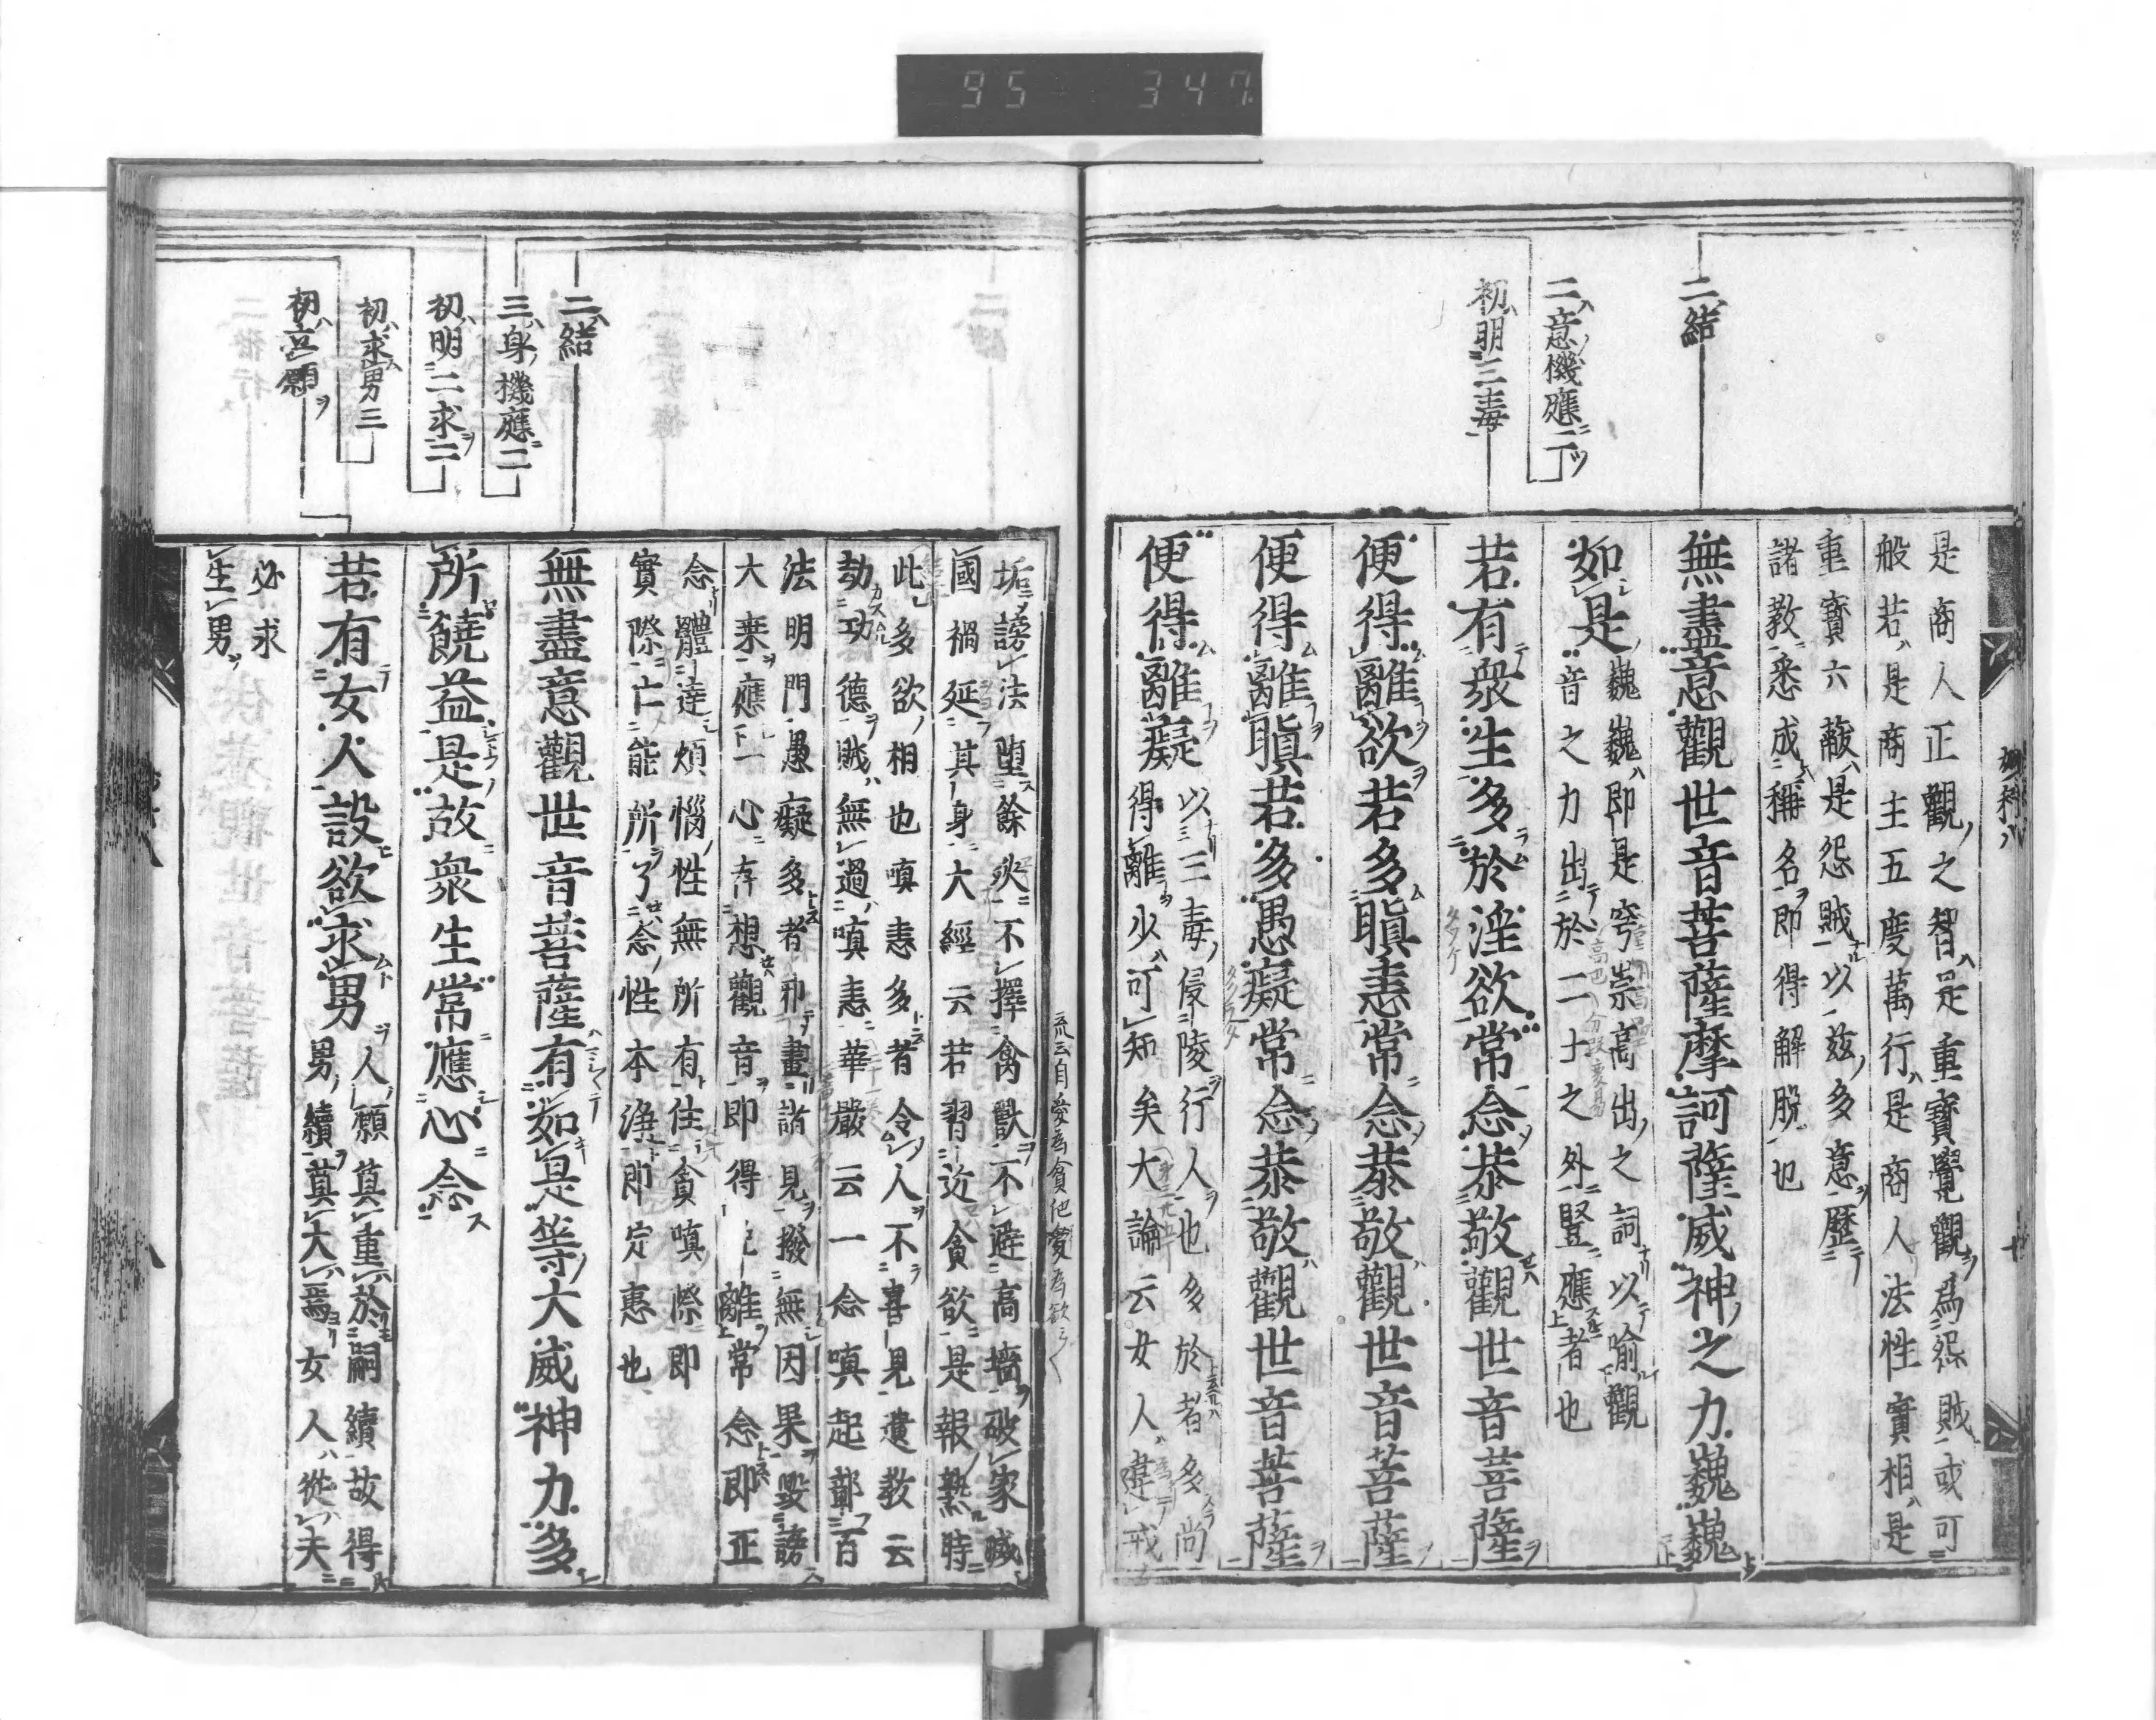 95 347
二結
二意機應二
初明三毒
是商人正觀之智是重寶覺觀為怨賊或可
般若是商主五度萬行是商人法性實相是
重寶六蔽是怨賊以茲多意歷
諸教悉成稱名即得解脫也
無盡意觀世音菩薩摩訶薩威神之力巍巍
如是
巍巍即是穹崇高出之詞以喻觀
音之力出於二士之外豎應者也
若有衆生多於淫欲常念恭敬觀世音菩薩
便得離欲若多瞋恚常念恭敬觀世音菩薩
便得離瞋若多愚癡常念恭敬觀世音菩薩
便得離癡
以三毒侵陵行人也多於者多尚
得離少可知矣大論云女人違戒
二結
三身機應二
初明二求二
初求男三
初立願
流云自愛為貪他愛為欲
垢謗法墮餘災不擇禽獸不避高墻破家滅
國禍延其身大經云若習近貪欲是報熟時
此多欲相也嗔恚多者令人不喜見遺教云
劫功德賊無過嗔恚華嚴云一念嗔起鄣百
法明門愚癡多者邪畫諸見撥無因果毀謗
大乗應一心存想觀音即得離常念即正
念體達煩惱性無所有住貪嗔際即
實際亡能所了念性本淨即定惠也
無盡意觀世音菩薩有如是等大威神力多
所饒益是故衆生常應心念
若有女人設欲求男
人願莫重於嗣續故得
男續莫大焉女人從夫
必求
生男